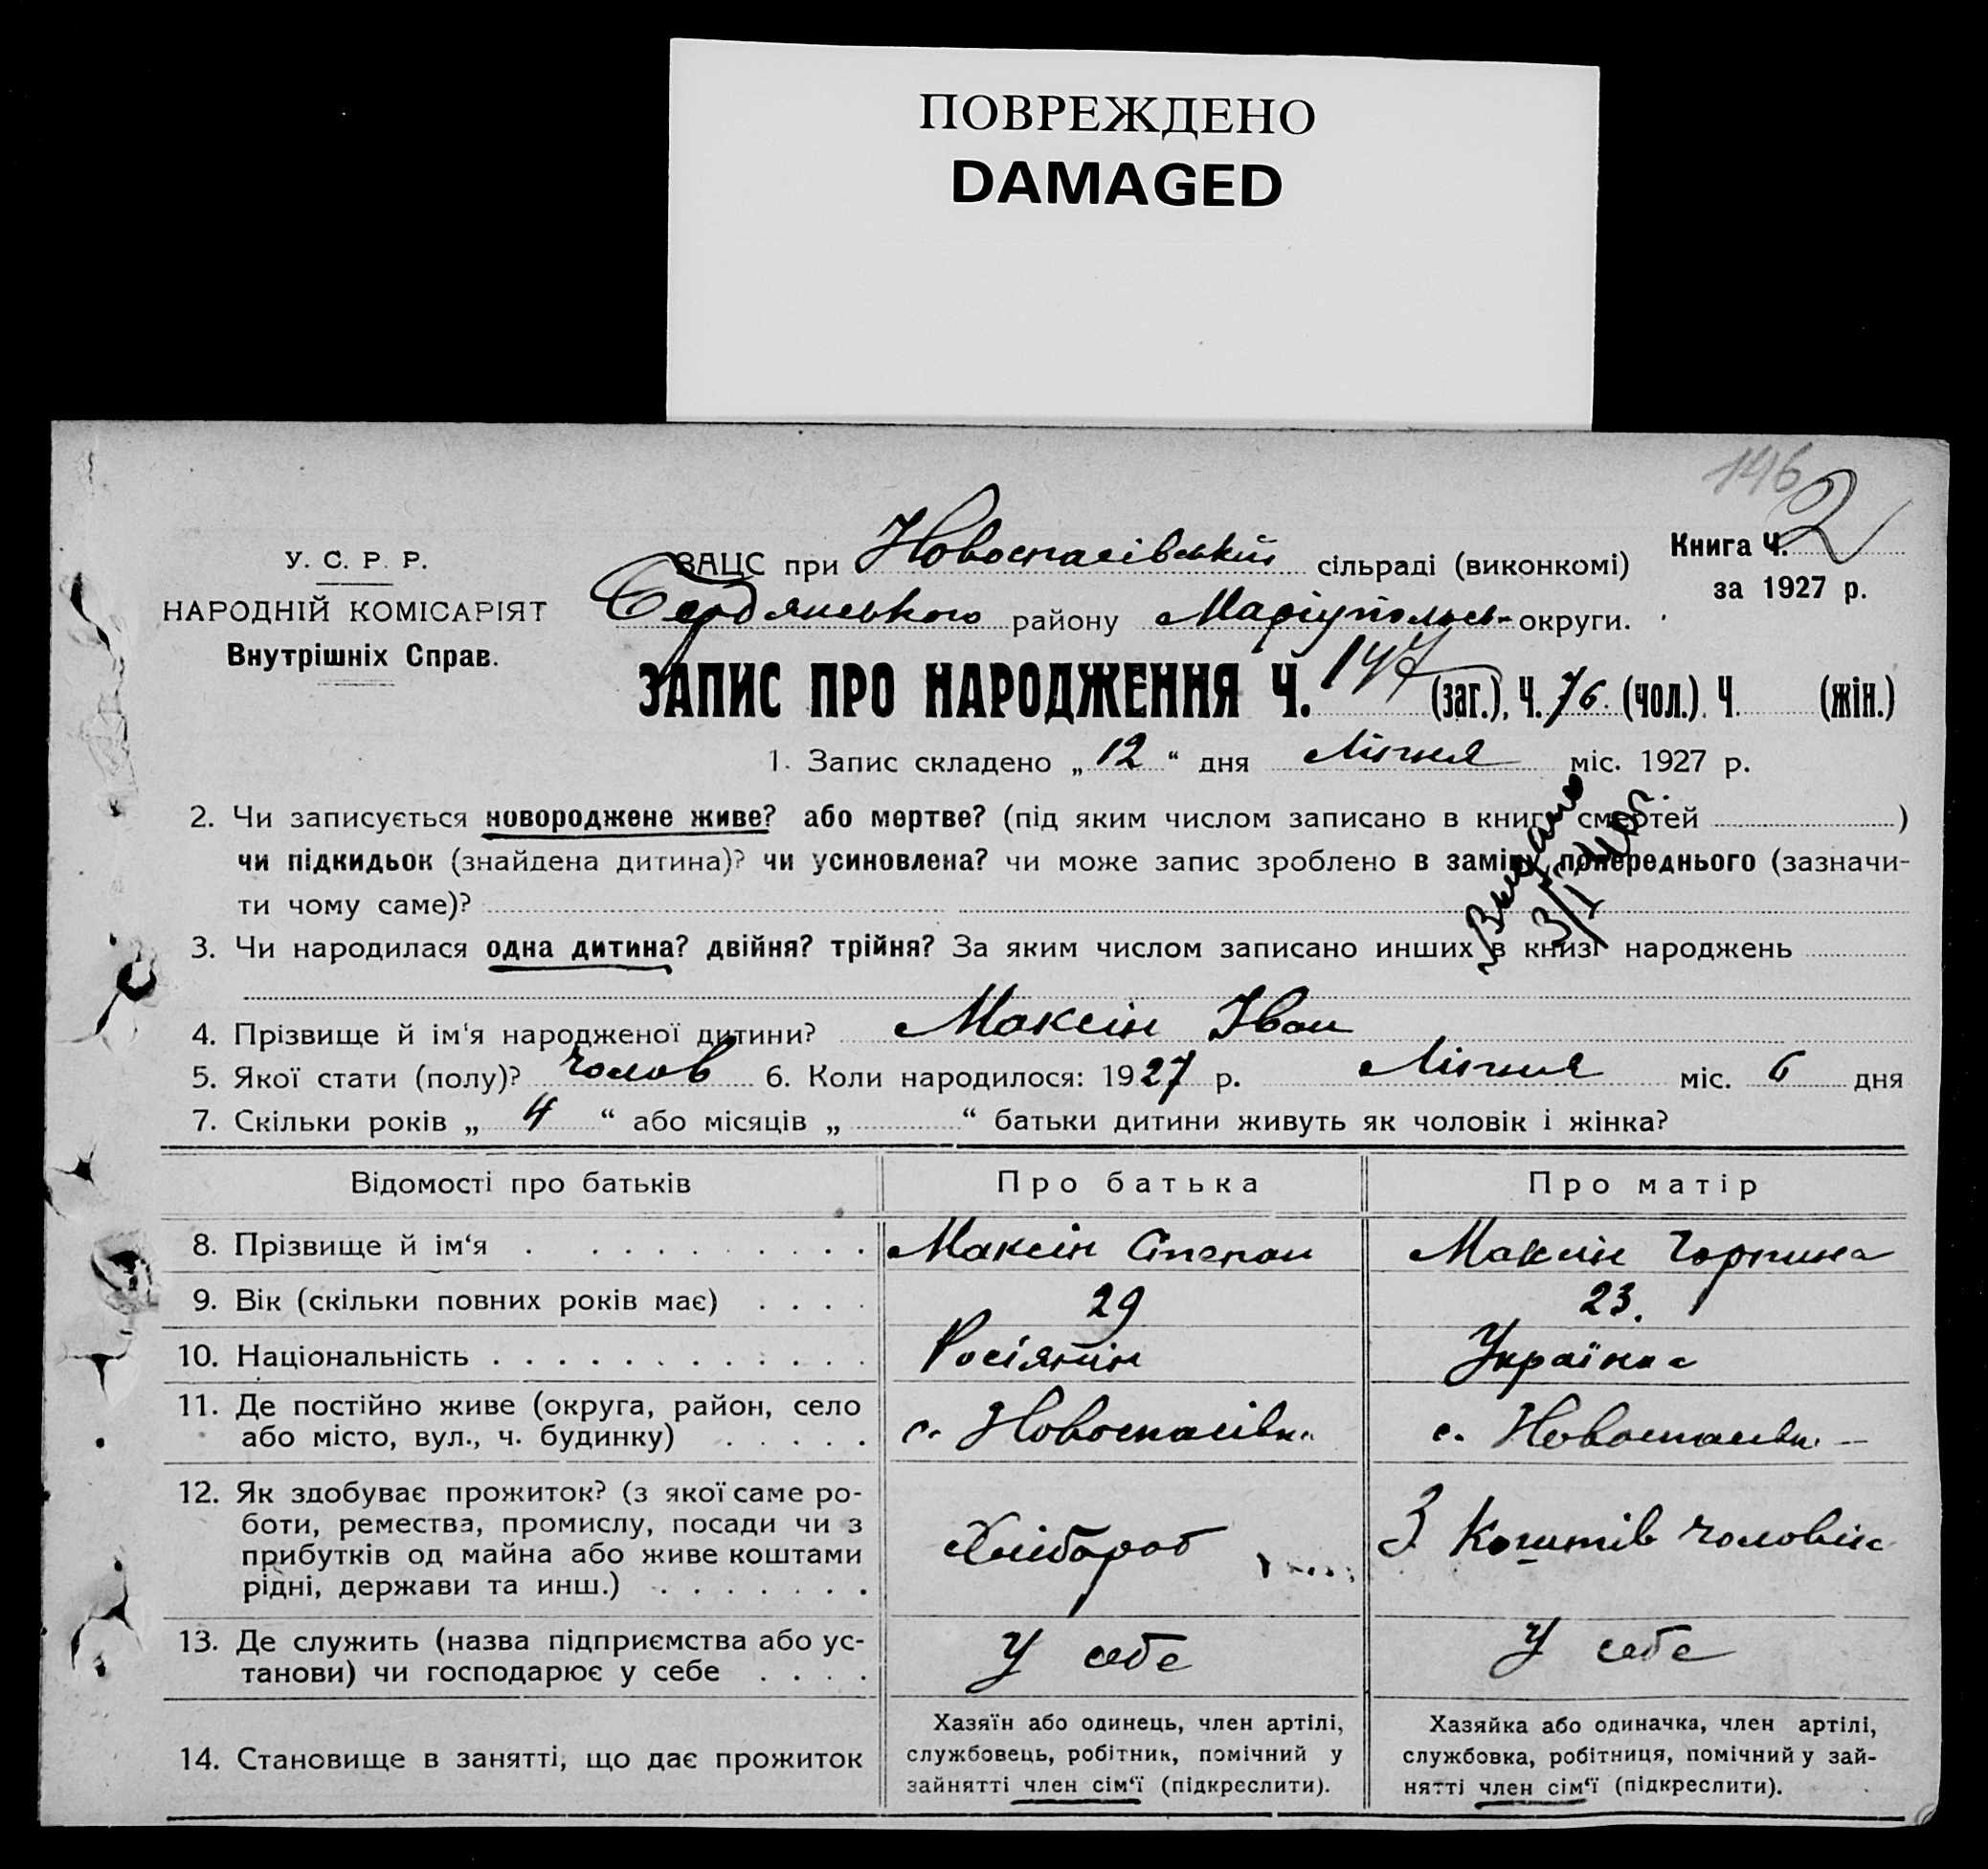 ПОВРЕЖДЕНО
DAMAGED
146
Книга Ч. 2
за 1927 р.
У. С. Р. Р.
НАРОДНІЙ КОМІСАРІЯТ
Внутрішніх Справ.
ЗАЦС при Новоспасівській сільраді (виконкомі)
Бердянського району Маріупольс. округи.
ЗАПИС ПРО НАРОДЖЕННЯ Ч. 147 (заг.), Ч. 76 (чол.). Ч. (жін.)
1. Запис складено „ 12 “ дня Липня міс. 1927 р.
2. Чи записується новороджене живе? або мертве? (під яким числом записано в книгу смертей )
чи підкидьок (знайдена дитина)? чи усиновлена? чи може запис зроблено в заміну попереднього (зазначи-
ти чому саме)?
3. Чи народилася одна дитина? двійня? трійня? За яким числом записано инших в книзі народжень
4. Прізвище й ім'я народженої дитини? Максін Іван
5. Якої стати (полу)? Чолов 6. Коли народилося: 1927 р. Липня міс. 6 дня
7. Скільки років „ 4 “ або місяців „ “ батьки дитини живуть як чоловік і жінка?
Відомості про батьків Про батька Про матір
8. Прізвище й ім‘я Максін Степан Максін Горпина
9. Вік (скільки повних років має) 29 23.
10. Національність Росіянін Українка
11. Де постійно живе (округа, район, село
або місто, вул., ч. будинку) с. Новоспасівка с. Новоспасівка
12. Як здобуває прожиток? (з якої саме ро-
боти, ремества, промислу, посади чи з
прибутків од майна або живе коштами
рідні, держави та инш.) Хлібороб З Коштів чоловіка
13. Де служить (назва підприємства або ус-
танови) чи господарює у себе У себе У себе
14. Становище в занятті, що дає прожиток
Хазяїн або одинець, член артілі,
службовець, робітник, помічний у
зайнятті член сім‘ї (підкреслити).
Хазяйка або одиначка, член артілі,
службовка, робітниця, помічний у зай-
нятті член сім‘ї (підкреслити).